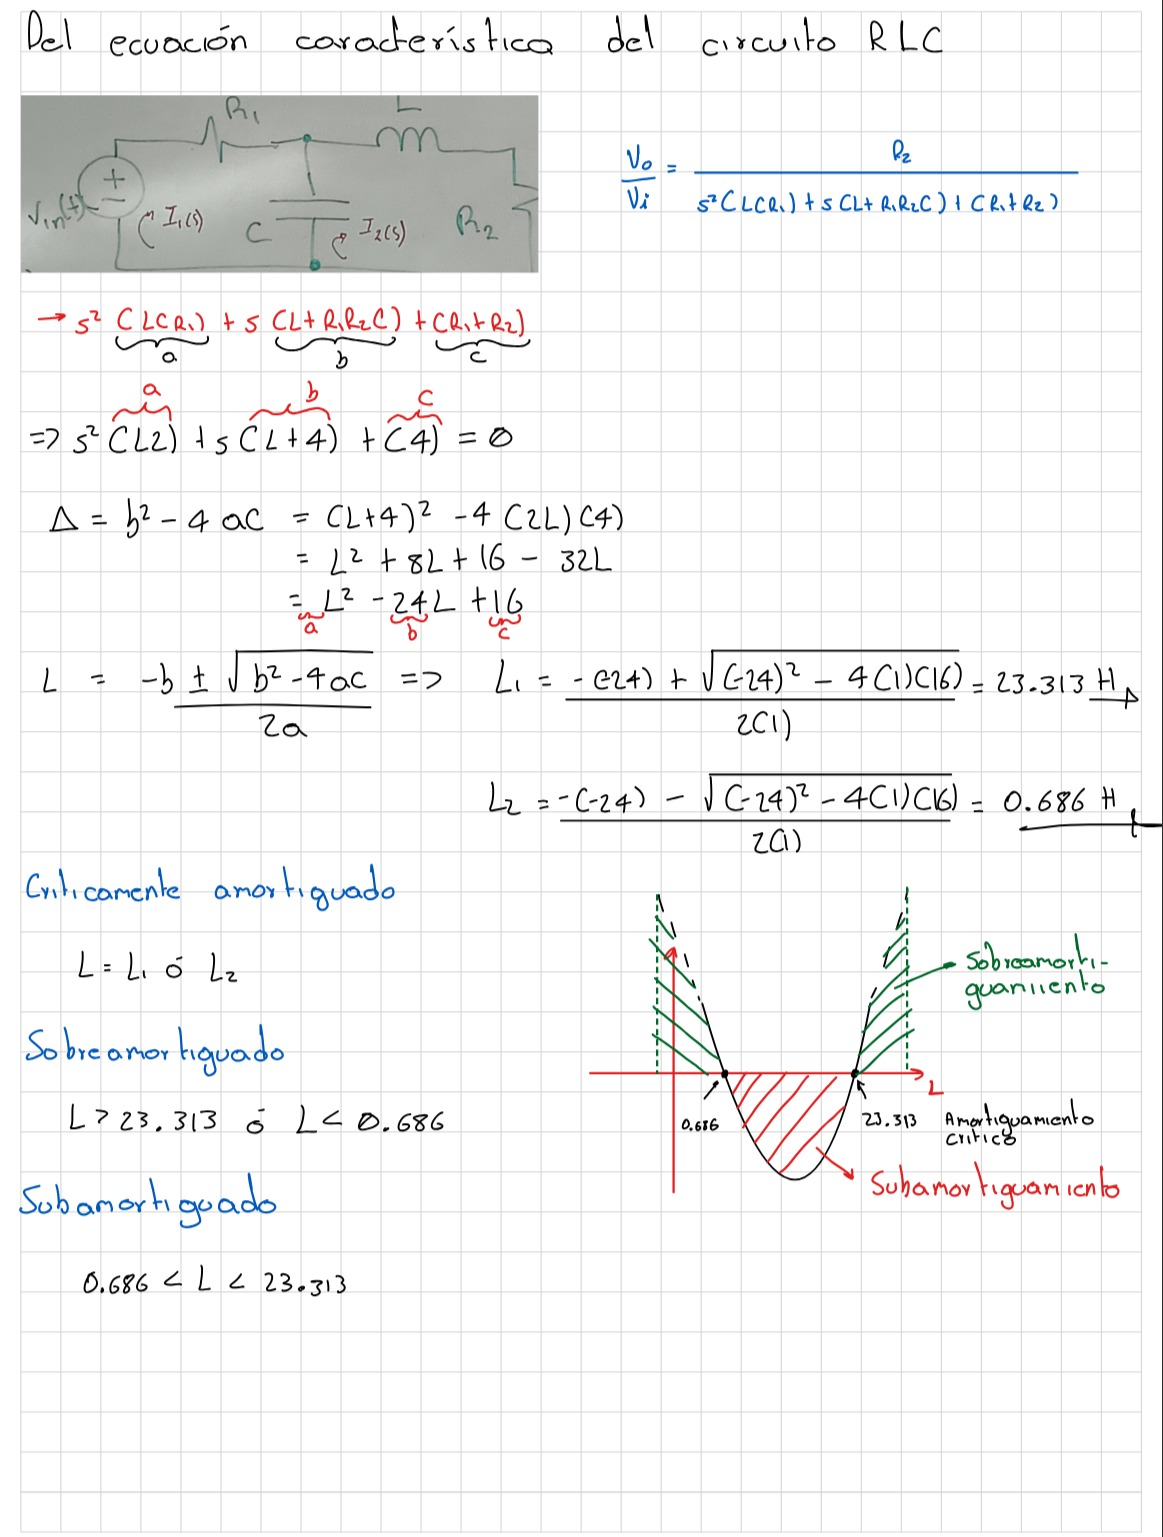 Del ecuación característica del circuito RLC
R₁ L
Vin(t) + − I₁(s) C I₂(s) R₂
Vo/Vi = R₂ / s²(LCR₁) + s(L+R₁R₂C) + (R₁+R₂)
→ s² (LCR₁) + s (L+R₁R₂C) + (R₁+R₂)
a b c
a b c
=> s² (L2) + s (L+4) + (4) = 0
Δ = b² - 4 ac = (L+4)² - 4 (2L)(4)
= L² + 8L + 16 - 32L
= L² - 24L + 16
a b c
L = -b ± √b² - 4ac / 2a => L₁ = -(-24) + √(-24)² - 4(1)(16) / 2(1) = 23.313 H
L₂ = -(-24) - √(-24)² - 4(1)(16) / 2(1) = 0.686 H
Criticamente amortiguado
L = L₁ ó L₂
Sobreamortiguado
L > 23.313 ó L < 0.686
Subamortiguado
0.686 < L < 23.313
Sobreamorti-
guamiento
L
0.686 23.313 Amortiguamiento
critico
Subamortiguamiento